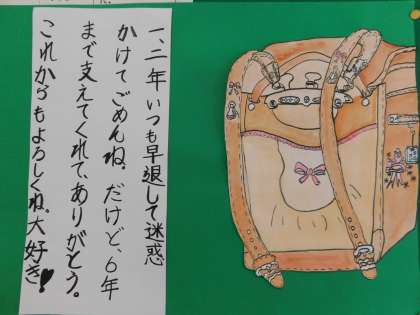 一、二年いつも早退して迷惑
かけてごめんね。だけど、6年
まで支えてくれて、ありがとう。
これからもよろしくね。大好き!